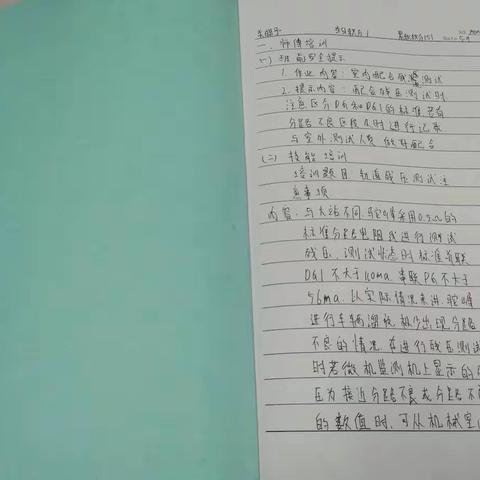 一. 师傅培训
(一) 班前安全提示
1. 作业内容: 室内配合残压测试
2. 提示内容: 配合残压测试时
注意区分DG和DG1的标准若有
分路不良区段及时进行记录
与室外测试人员做好配合
(二) 技能培训
培训题目 轨道残压测试注
意事项
内容: 与大站不同 驼峰采用0.5Ω的
标准分路电阻线进行测试
残压, 测试状态时标准并联
DG1 不大于110ma 串联DG不大于
56ma. 从实际情况来讲, 驼峰
进行车辆溜放 极少出现分路
不良的情况. 在进行残压测试
时若微机监测机上显示的
压为接近分路不良或分路不
的数值时, 可从机械室